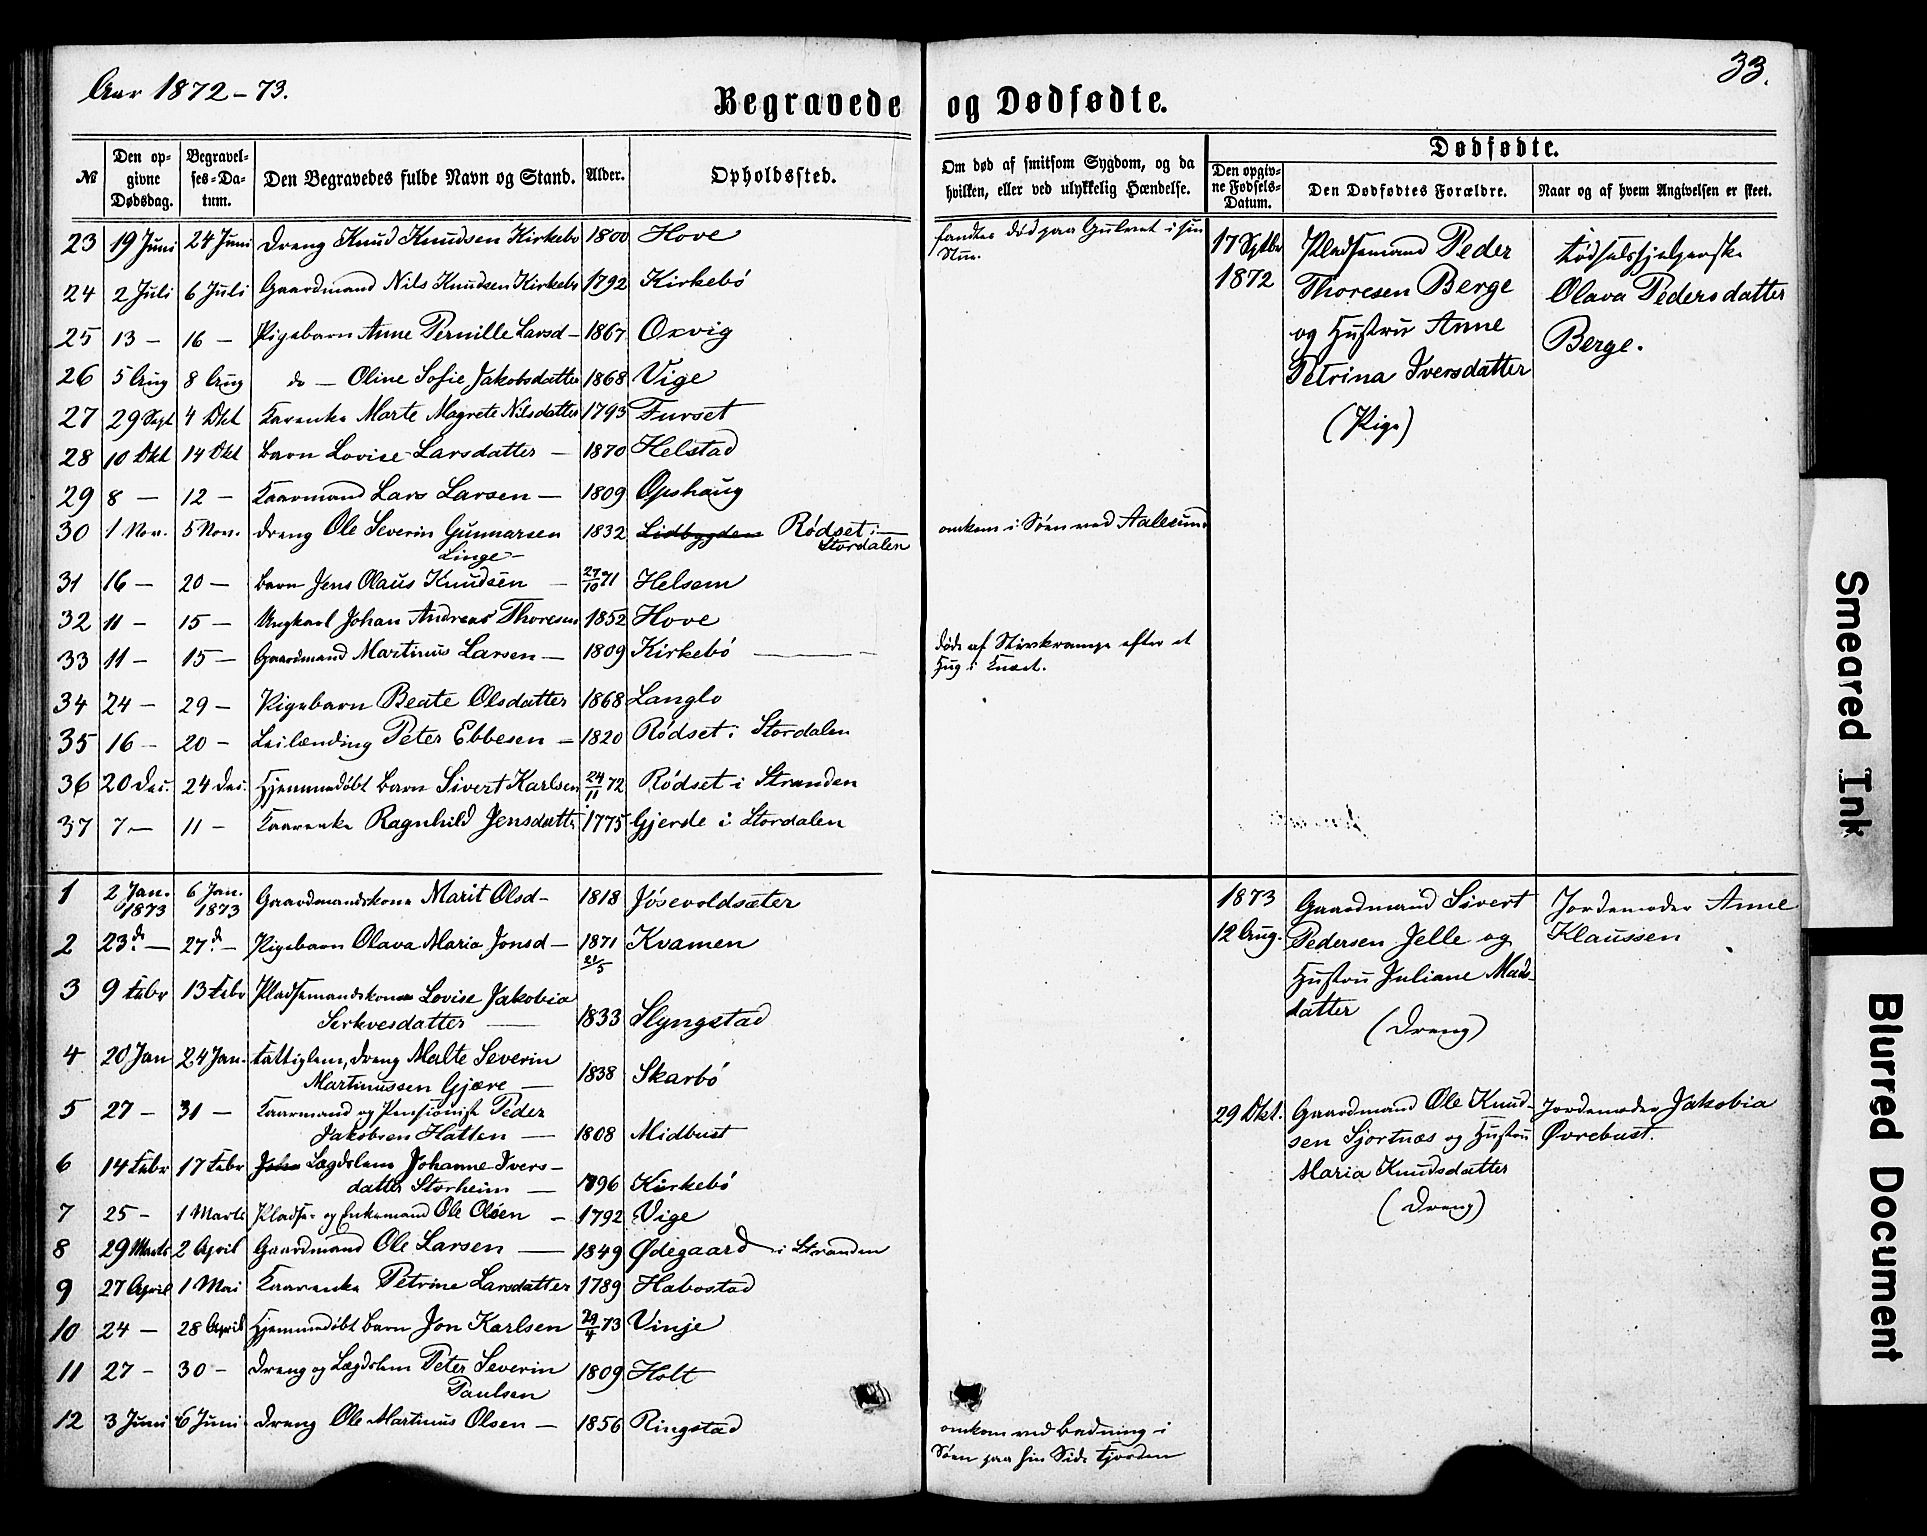 Aar 1872-73.
33.
Begravede og Dødfødte.
№
Den op-
givne
Dødsdag.
Begravel-
ses-Da-
tum.
Den Begravedes fulde Navn og Stand.
Alder.
Opholdssted.
Om død af smitsom Sygdom, og da
hvilken, eller ved ulykkelig Hændelse.
Dødfødte.
Den opgiv-
ne Fødsels-
Datum.
Den Dødfødtes Forældre.
Naar og af hvem Angivelsen er skeet.
23 19 Juni 24 Juni Dreng Knud Knudsen Kirkebø 1800 Hove fandtes død paa Gulvet i sin
Stue.
24 2 Juli 6 Juli Gaardmand Nils Knudsen Kirkebø 1792 Kirkebö
25 13 — 16 — Pigebarn Anne Pernille Larsd — 1867 Oxvig
26 5 Aug 8 Aug do — Oline Sofie Jakobsdatter 1868 Vige
27 29 Sept 4 Okt Kaarenke Marte Magrete Nilsdatter 1793 Furset
28 10 Okt 14 Okt Barn Lovise Larsdatter — 1870 Helstad
29 8 — 12 — Kaarmand Lars Larsen — 1809 Opshaug
30 1 Nov. 5 Nov. Dreng Ole Severin Gunnarsen 1832 Lidbygden Rödset i omkom i Söen ved Aalesund
Linge — Stordalen
31 16 — 20 — Barn Jens Olaus Knudsen — 27/10 71 Helsem
32 11 — 15 — Ungkarl Johan Andreas Thoresen 1852 Hove
33 11 — 15 — Gaardmand Martinus Larsen — 1809 Kirkebö — døde af Stivkrampe efter et
Hug i Knæet.
34 24 — 29 — Pigebarn Beate Olsdatter 1868 Langlo
35 16 — 20 — Leilænding Peter Ebbesen — 1820 Rödset i Stordalen
36 20 Dec. 24 Dec. Hjemmedöbt Barn Sivert Karlsen 24/11 72 Rödset i Stranden
37 7 — 11 — Kaarenke Ragnhild Jensdatter 1775 Gjerde i Stordalen
17 Septbr
1872
Pladsemand Peder
Thoresen Berge
og Hustru Anne
Petrina Iversdatter
(Pige)
Fødselshjelperske
Olava Pedersdatter
Berge.
1 2 Jan. 1873 6 Jan. 1873 Gaardmandskone Marit Olsd — 1818 Jösevoldsæter
2 23 d — 27 d — Pigebarn Olava Maria Jonsd — 1871 21/5 Kvamen
3 9 Febr 13 Febr Pladsemandskone Lovise Jakobia
Serkvesdatter — 1833 Slyngstad
4 20 Jan 24 Jan. Fattiglem, Dreng Malte Severin
Martinussen Gjære — 1838 Skarbö
5 27 — 31 — Kaarmand og Pensionist Peder
Jakobsen Hatlen — 1808 Midbust
6 14 Febr 17 Febr Joha Lægdslem Johanne Ivers-
datter Storheim — 1796 Kirkebö
7 25 — 1 Marts Pladse- og Enkemand Ole Olsen — 1792 Vige
8 29 Marts 2 April Gaardmand Ole Larsen — 1849 Ødegaard i Stranden
9 27 April 1 Mai Kaarenke Petrine Larsdatter 1789 Habostad
10 24 — 28 April Hjemmedöbt Barn Jon Karlsen 20/4 73 Vinje
11 27 — 30 — Dreng og Lægdslem Peter Severin
Paulsen 1809 Holt
12 3 Juni 6 Juni Dreng Ole Martinus Olsen — 1856 Ringstad omkom ved Badning i
Söen paa hin Side Fjorden
1873
12 Aug.
Gaardmand Sivert
Pedersen Jelle og
Hustru Juliane Mads-
datter
(Dreng)
Jordemoder Anne
Klaussen
29 Okt.
Gaardmand Ole Knud-
sen Sjortnæs og Hustru
Maria Knudsdatter
(Dreng)
Jordemoder Jakobia
Øvrebust.
Smeared Ink
Blurred Document